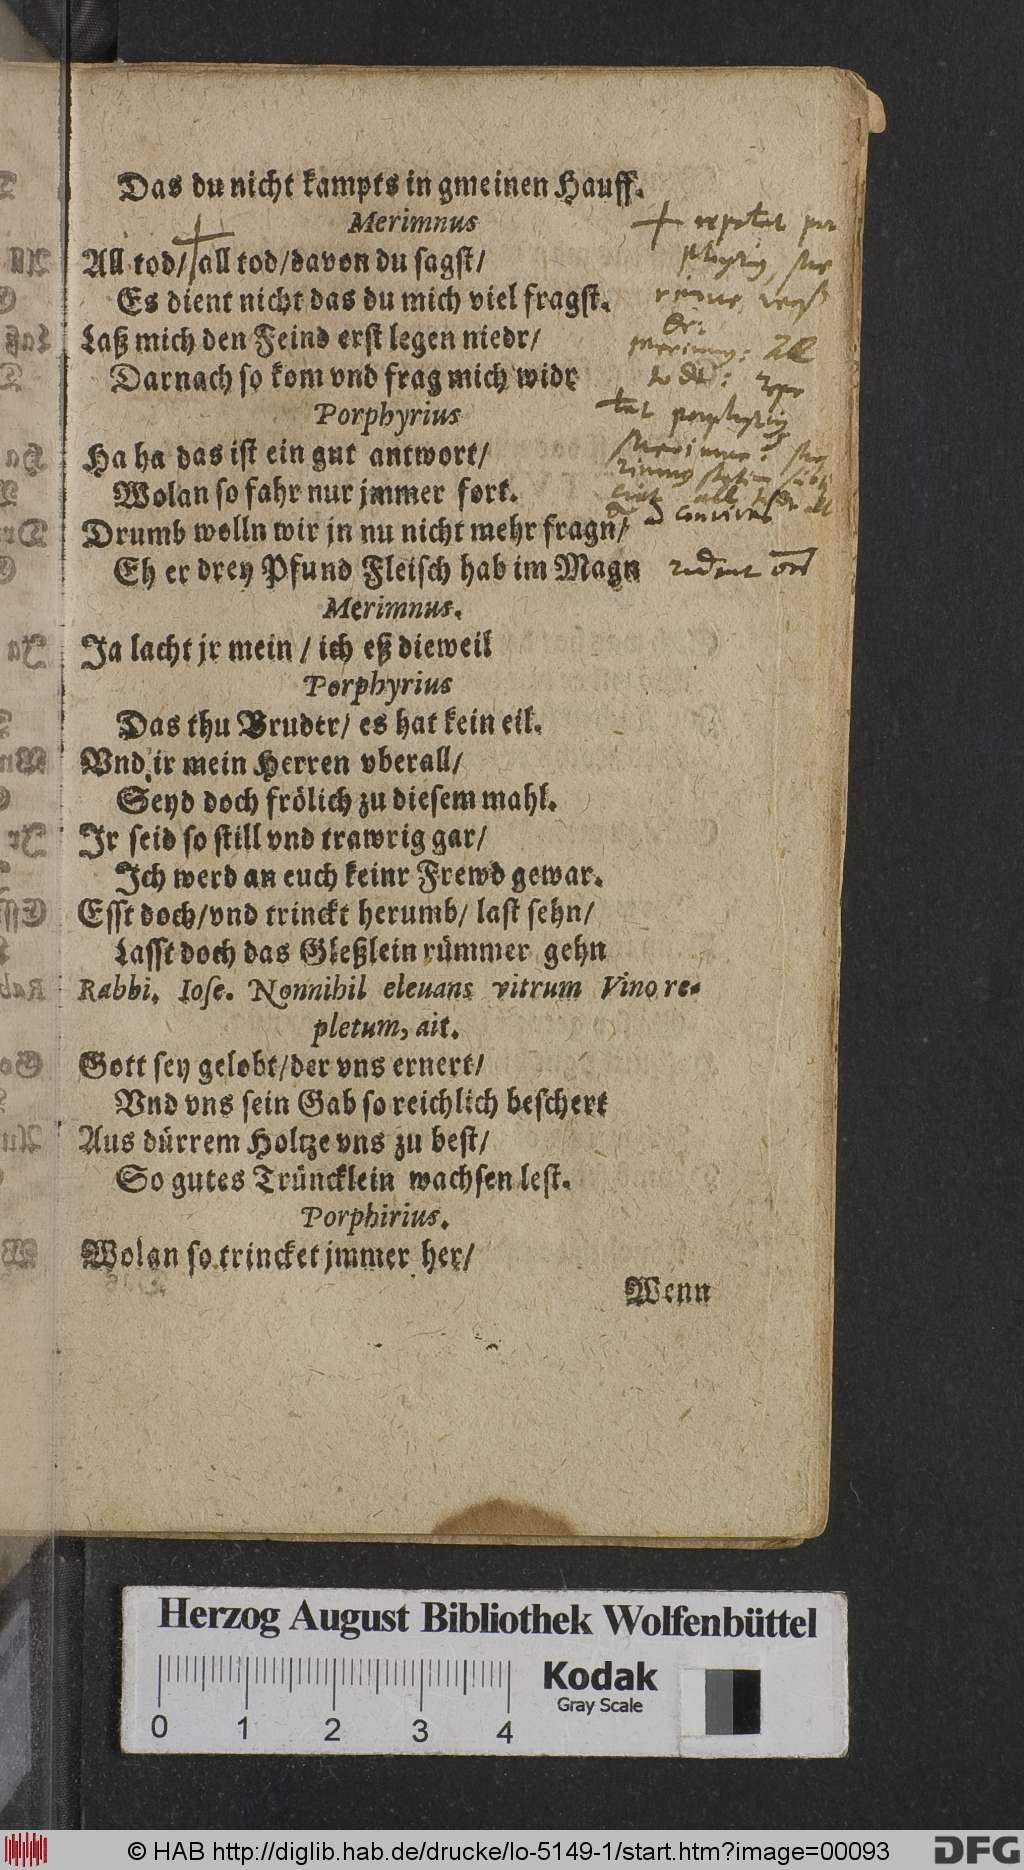 Das du nicht kampts in gmeinen Hauff.
Merimnus
All tod/ all tod/ davon du sagst/
Es dient nicht das du mich viel fragst.
Laß mich den Feind erst legen niedr/
Darnach so kom vnd frag mich widr
Porphyrius
Ha ha das ist ein gut antwort/
Wolan so fahr nur jmmer fort.
Drumb wolln wir jn nu nicht mehr fragn/
Eh er drey Pfund Fleisch hab im Magn
Merimnus.
Ja lacht jr mein / ich eß dieweil
Porphyrius
Das thu Bruder/ es hat kein eil.
Vnd ir mein Herren vberall/
Seyd doch frölich zu diesem mahl.
Ir seid so still vnd trawrig gar/
Ich werd an euch keinr Frewd gewar.
Esst doch/ vnd trinckt herumb/ last sehn/
Lasst doch das Gleßlein rümmer gehn
Rabbi. Iose. Nonnihil eleuans vitrum Vino re-
pletum, ait.
Gott sey gelobt/ der vns ernert/
Vnd vns sein Gab so reichlich beschert
Aus dürrem Holtze vns zu best/
So gutes Trüncklein wachsen lest.
Porphirius.
Wolan so trincket jmmer her/
Wenn
Herzog August Bibliothek Wolfenbüttel
Kodak
Gray Scale
0 1 2 3 4
© HAB http://diglib.hab.de/drucke/lo-5149-1/start.htm?image=00093
DFG